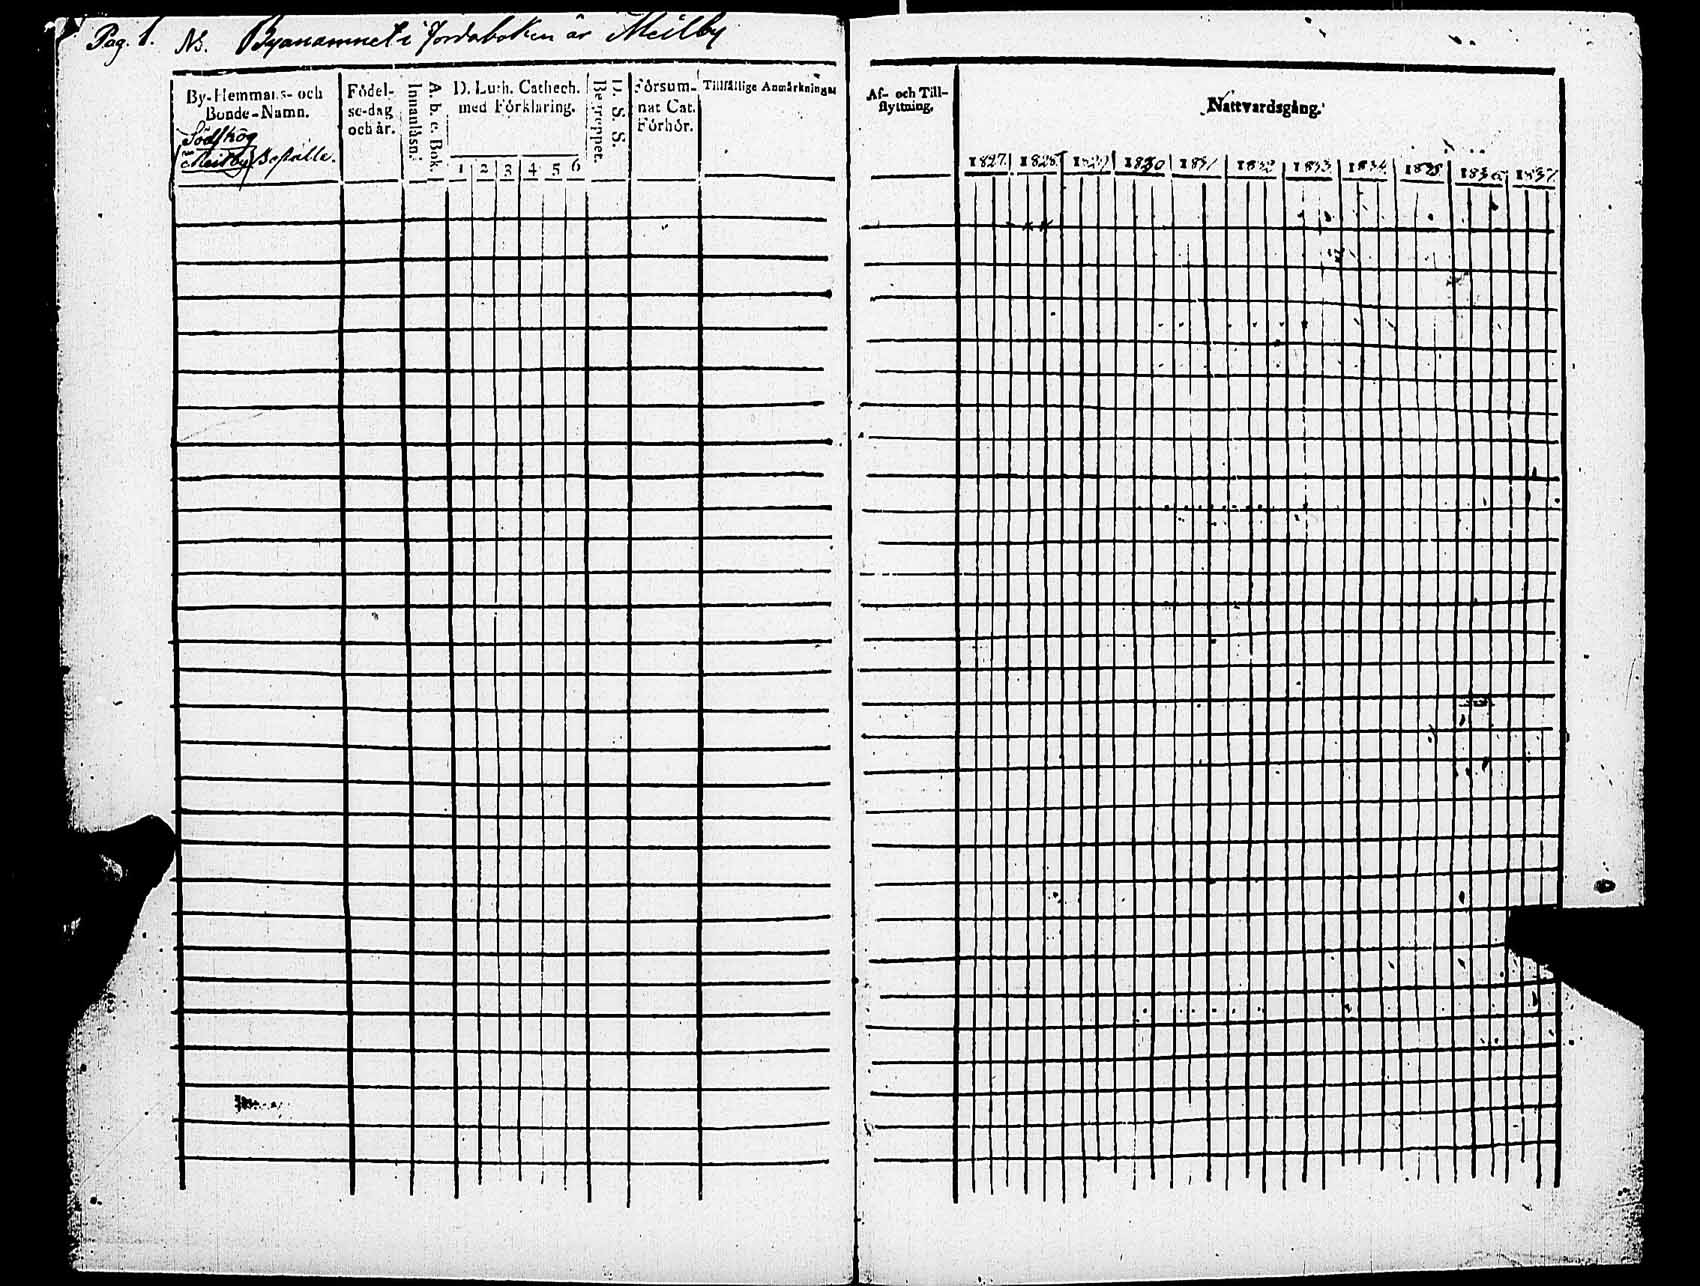 Pag. 1. NB. Byanamnet i Jordaboken är Meilby
By-Hemmans- och
Bonde-Namn.
Meilby Boställe.
Födel-
se-dag
och år.
Innanläsn.
A. b. c. Bok.
D. Luth. Cathech.
med Förklaring.
1 2 3 4 5 6
Begreppet.
D. S. S.
Försum-
nat Cat.
Förhör.
Tillfällige Anmärkningar
Af- och Till-
flyttning.
Nattvardsgång.
1827. 1828. 1829 1830 1831 1832 1833 1834 1835 1836 1837.